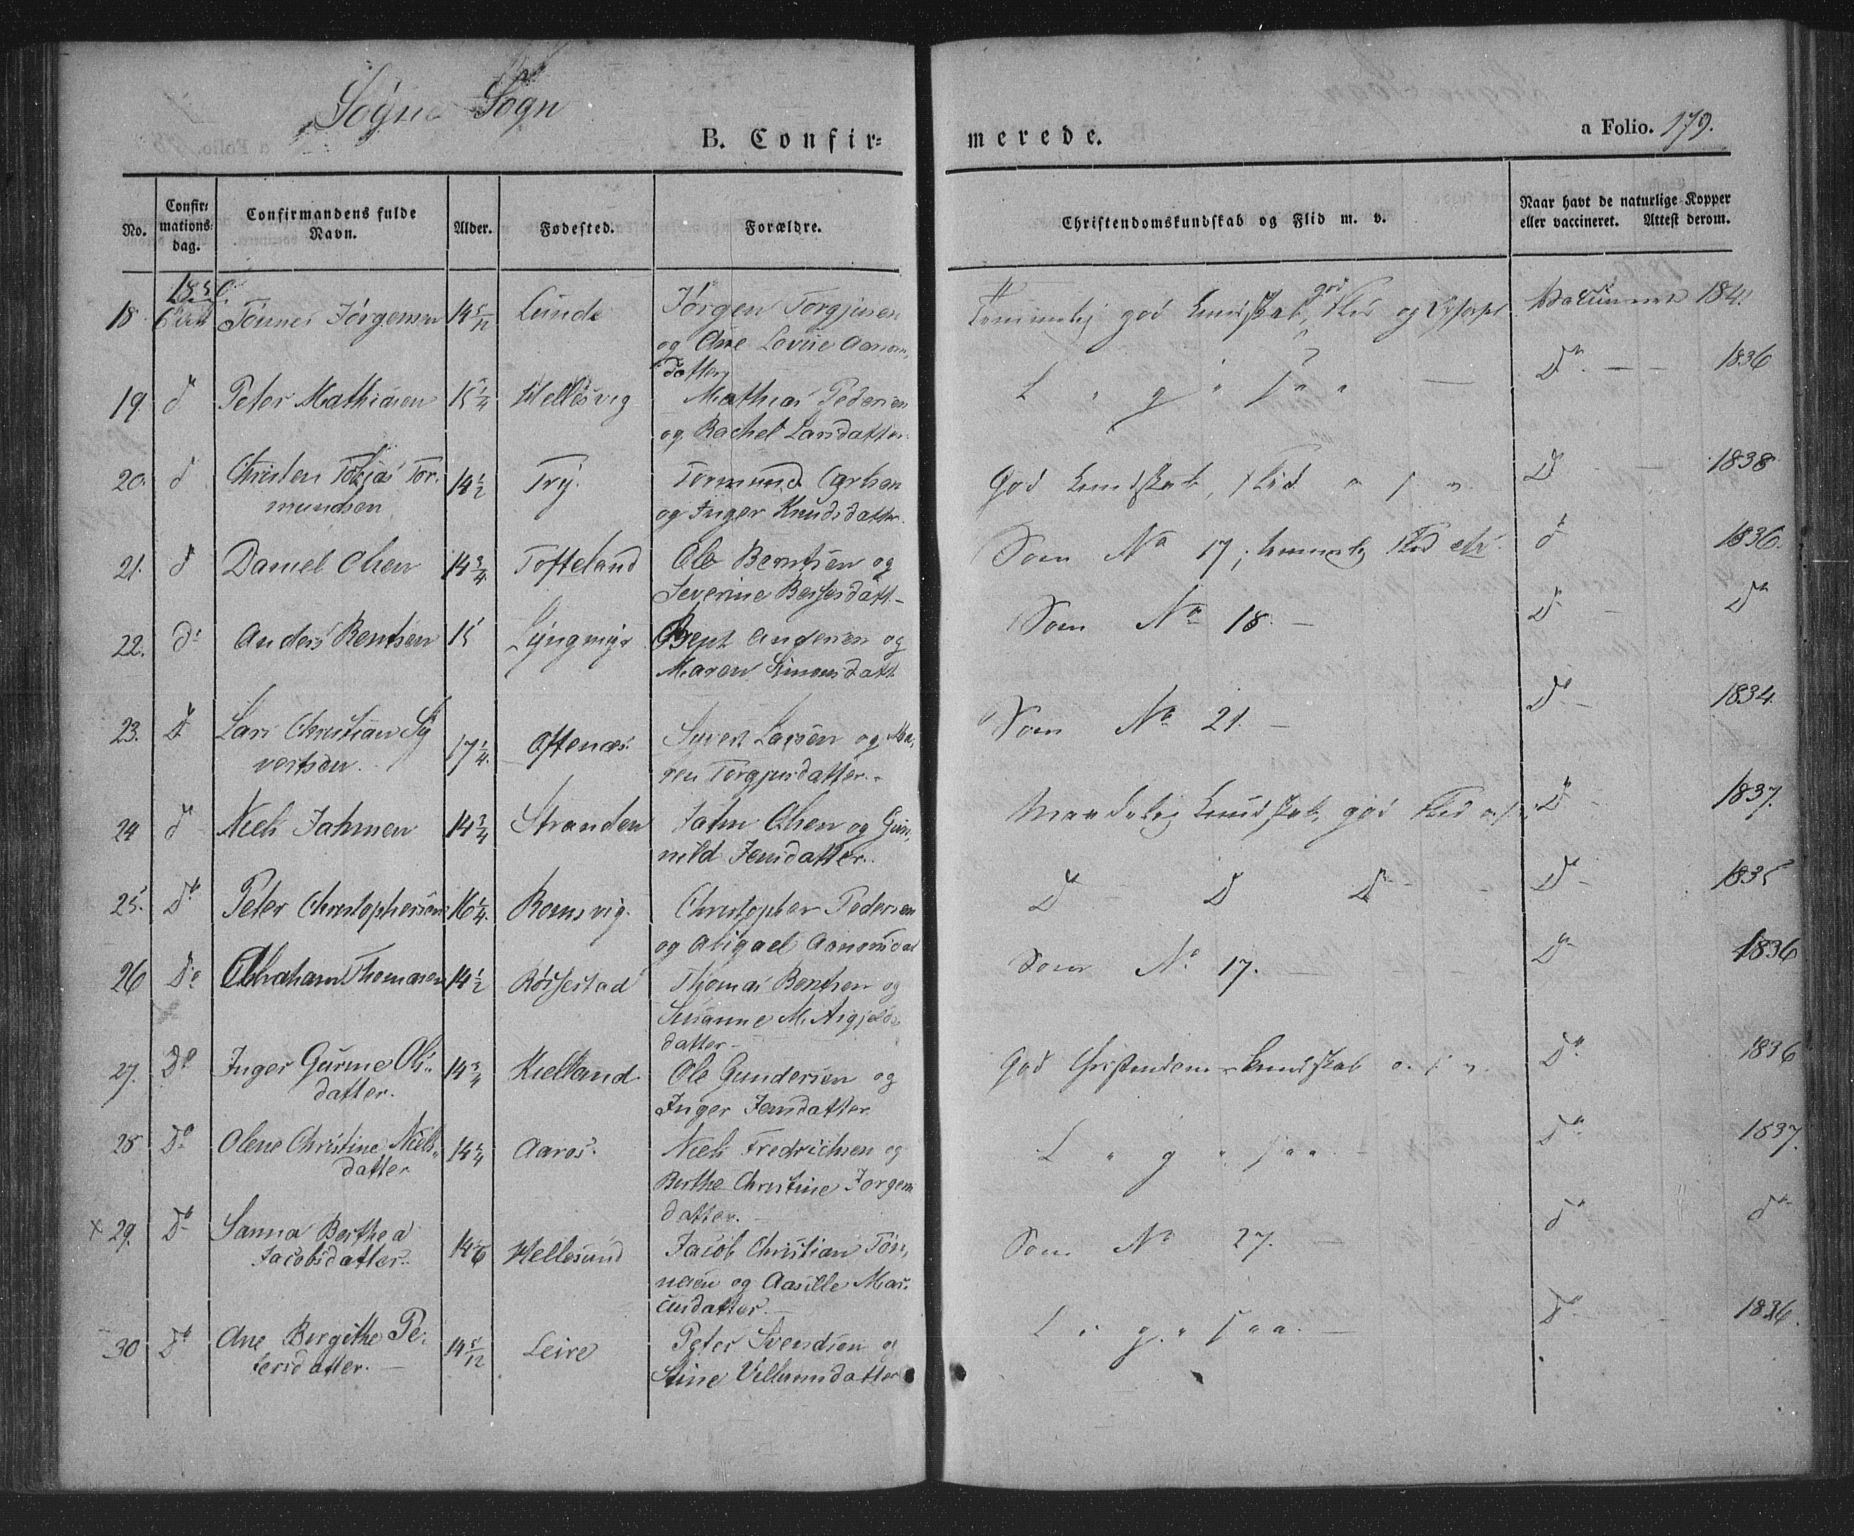 Søgne Sogn
B. Confirmerede.
a Folio. 179.
No. Confirmationsdag. Confirmandens fulde Navn. Alder. Fødested. Forældre. Christendomskundskab og Flid m. v. Naar havt de naturlige Kopper eller vaccineret. Attest derom.
1850
18 Tønnes Jørgensen 14 5/12 Lunde Jørgen Torgjusen
og Ane Lovise Aanons
datter
Temmelig god Kundskab, god Flid og Vaccineret 184
19. d Peter Mathiasen 15 1/4 Hellesvig Mathias Pedersen
og Rachel Larsdatter.
L i g e s a a Do. 1836
20. d Christen Tobias Tor-
mundsen
14 1/2 Try Tormund
og Inger Knudsdatter.
God Kundskab, Flid o s v. D 1838
21. d Daniel Olsen 14 3/4 Tofteland Ole Berntsen og
Severine
Som No 17, temmelig Flid etc. d 1836.
22. do Anders Bentsen 15 Lyngmyr Bent Andersen og
Maren Simonsdatt
Som No 18. D Do
23. D Lars Christian Sy
vertsen.
17 1/4. Oftenæs. Syvert Larsen og Ma-
ren Torgjusdatter.
Som No 21. Do 1834.
24 d Niels Jahnsen 14 3/4 Stranden Jahn Olsen og Gun-
nild Jensdatter.
Maadelig Kundskab, god Flid o s v D 1837.
25. Do Peter Christophersen 16 1/4 Romsvig. Christopher Pedersen
og Abigael Aanonsdat
D D D D 1835
26 Do Abraham Thomasen 14 1/2 Røssestad Thomas Bentsen og
Susanne M.
datter
Som No 17. Do 1836
27. Do Inger Gurine Ols-
datter.
14 3/4 Kielland Ole Gundersen og
Inger Jensdatter
God Christendoms Kundskab o. s v. Do. 1836
28 Do Olene Christine Niels-
datter
14 1/4 Aaros. Niels Fredrichsen og
Berthe Christine Jørgens
datter.
L i g e s a a. Do. 1837.
x 29. Do Sanna Berthea
Jacobsdatter.
14 Hellesund Jacob Christian Tøn-
nesen og Aasille Mar-
cusdatter.
Som No 27. do do
30 Do Ane Bergithe Pe-
tersdatter.
14 5/12 Leire Peter Svendsen og
Stine Villumsdatter
L i g e s a a. Do 1836.